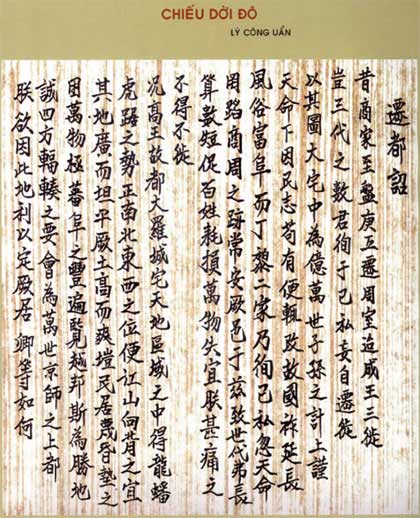 CHIẾU DỜI ĐÔ
LÝ CÔNG UẨN
遷都詔
昔商家至盤庚五遷周室迨成王三徙
豈三代之數君徇于己私妄自遷徙
以其圖大宅中為億萬世子孫之計上謹
天命下因民志苟有便輒改故國祚延長
風俗富阜而丁黎二家乃徇己私忽天命
罔蹈商周之跡常安厥邑于茲致世代弗長
算數短促百姓耗損萬物失宜朕甚痛之
不得不徙
況高王故都大羅城宅天地區域之中得龍蟠
虎踞之勢正南北東西之位便江山向背之宜
其地廣而坦平厥土高而爽塏民居蔑昏墊之
困萬物極蕃阜之豐遍覽越邦斯為勝地
誠四方輻輳之要會為萬世京師之上都
朕欲因此地利以定厥居卿等如何